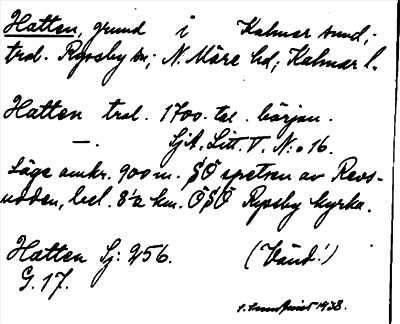 Hatten, grund i Kalmar sund,
trol. Ryssby sn; N. Möre hd; Kalmar l.
Hatten trol. 1700-tal. början.
—. SjA. Litt. T. N:o 16.
Läge omkr. 900 m. SO spetsen av Revs-
udden, bel. 8½ km. OSO Ryssby kyrka.
Hatten Sj: 256. (Vänd!)
G. 17.
1938.